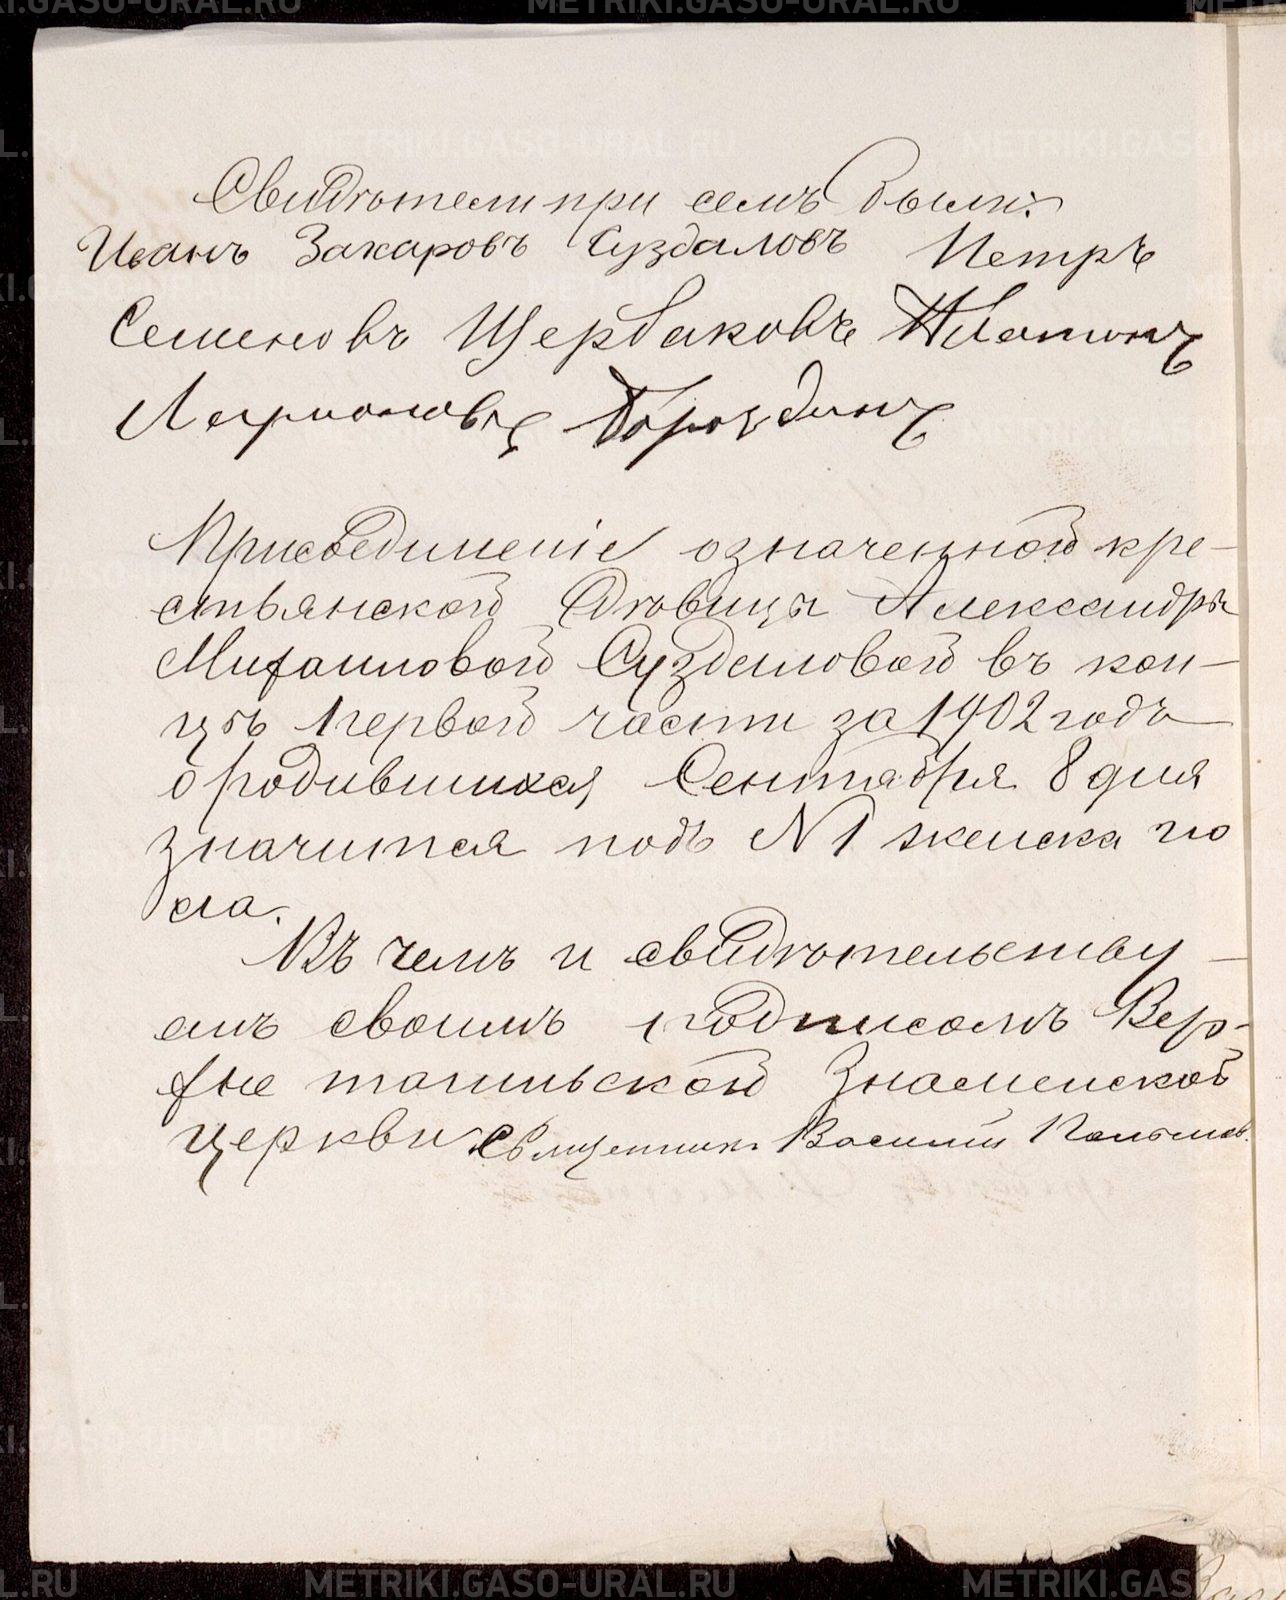 Свидѣтели при семъ были:
Иванъ Захаровъ Суздаловъ Петръ
Семеновъ Щербаковъ Платонъ
Ларионовъ Бороздинъ
Присоединеніе означенной кре-
стьянской дѣвицы Александры
Михайловой Суздаловой въ кон-
цѣ первой части за 1902 годъ
о родившихся Сентября 8 дня
значится подъ N 1 женска по
ла.
Въ чемъ и свидѣтельству-
емъ своимъ подписомъ Верх-
хне тагильской Знаменской
церкви Священникъ Василій
METRIKI.GASO-URAL.RU